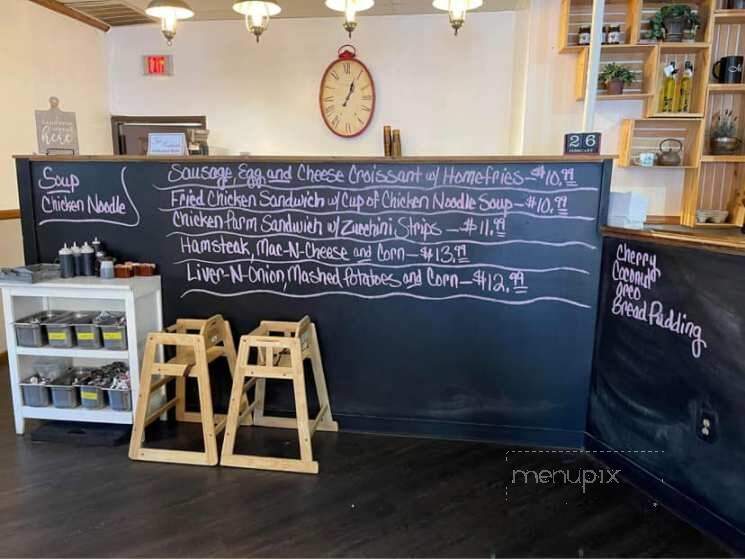 here
26
Soup
Chicken Noodle
Sausage, Egg, and Cheese Croissant w/ Homefries - $10.99
Fried Chicken Sandwich w/ Cup of Chicken Noodle Soup - $10.99
Chicken Parm Sandwich w/ Zucchini Strips - $11.99
Hamsteak, Mac-N-Cheese and Corn - $13.99
Liver-N-Onion, Mashed Potatoes and Corn - $12.99
Cherry
Coconut
Oreo
Bread Pudding
menupix